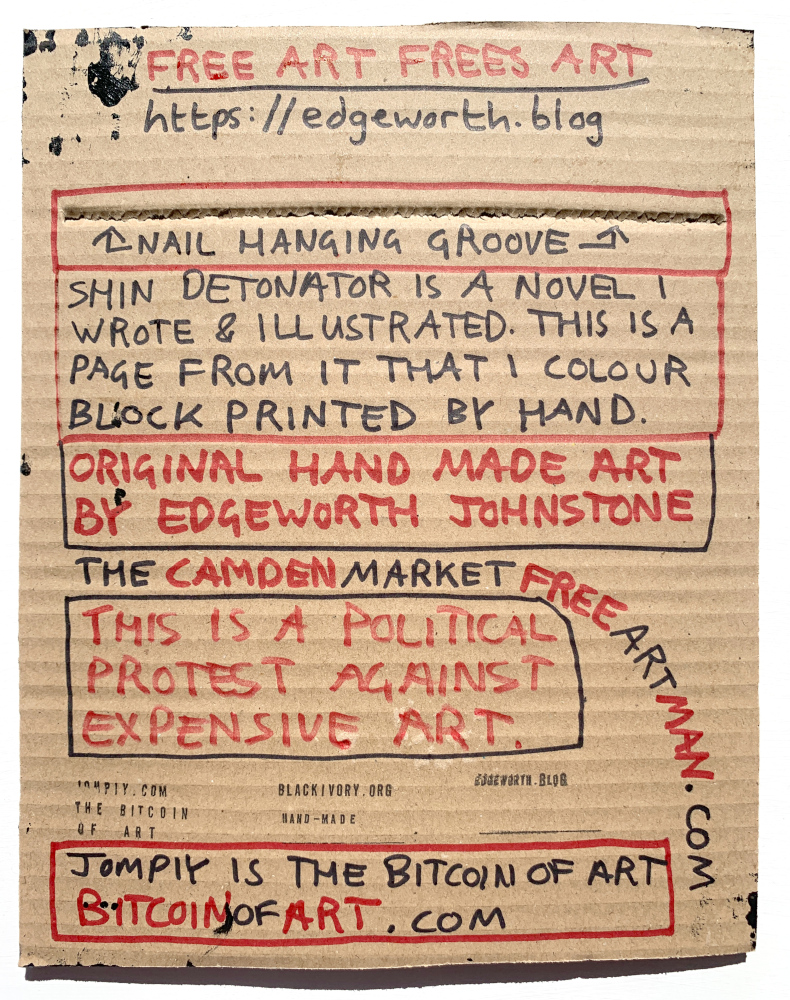 FREE ART FREES ART
https://edgeworth.blog
↑NAIL HANGING GROOVE↑
SHIN DETONATOR IS A NOVEL I
WROTE & ILLUSTRATED. THIS IS A
PAGE FROM IT THAT I COLOUR
BLOCK PRINTED BY HAND.
ORIGINAL HAND MADE ART
BY EDGEWORTH JOHNSTONE
THE CAMDEN MARKET FREE ART MAN.COM
THIS IS A POLITICAL
PROTEST AGAINST
EXPENSIVE ART.
JOMPIY.COM
THE BITCOIN
OF ART
BLACKIVORY.ORG
HAND-MADE
EDGEWORTH.BLOG
JOMPIY IS THE BITCOIN OF ART
BITCOINOFART.COM